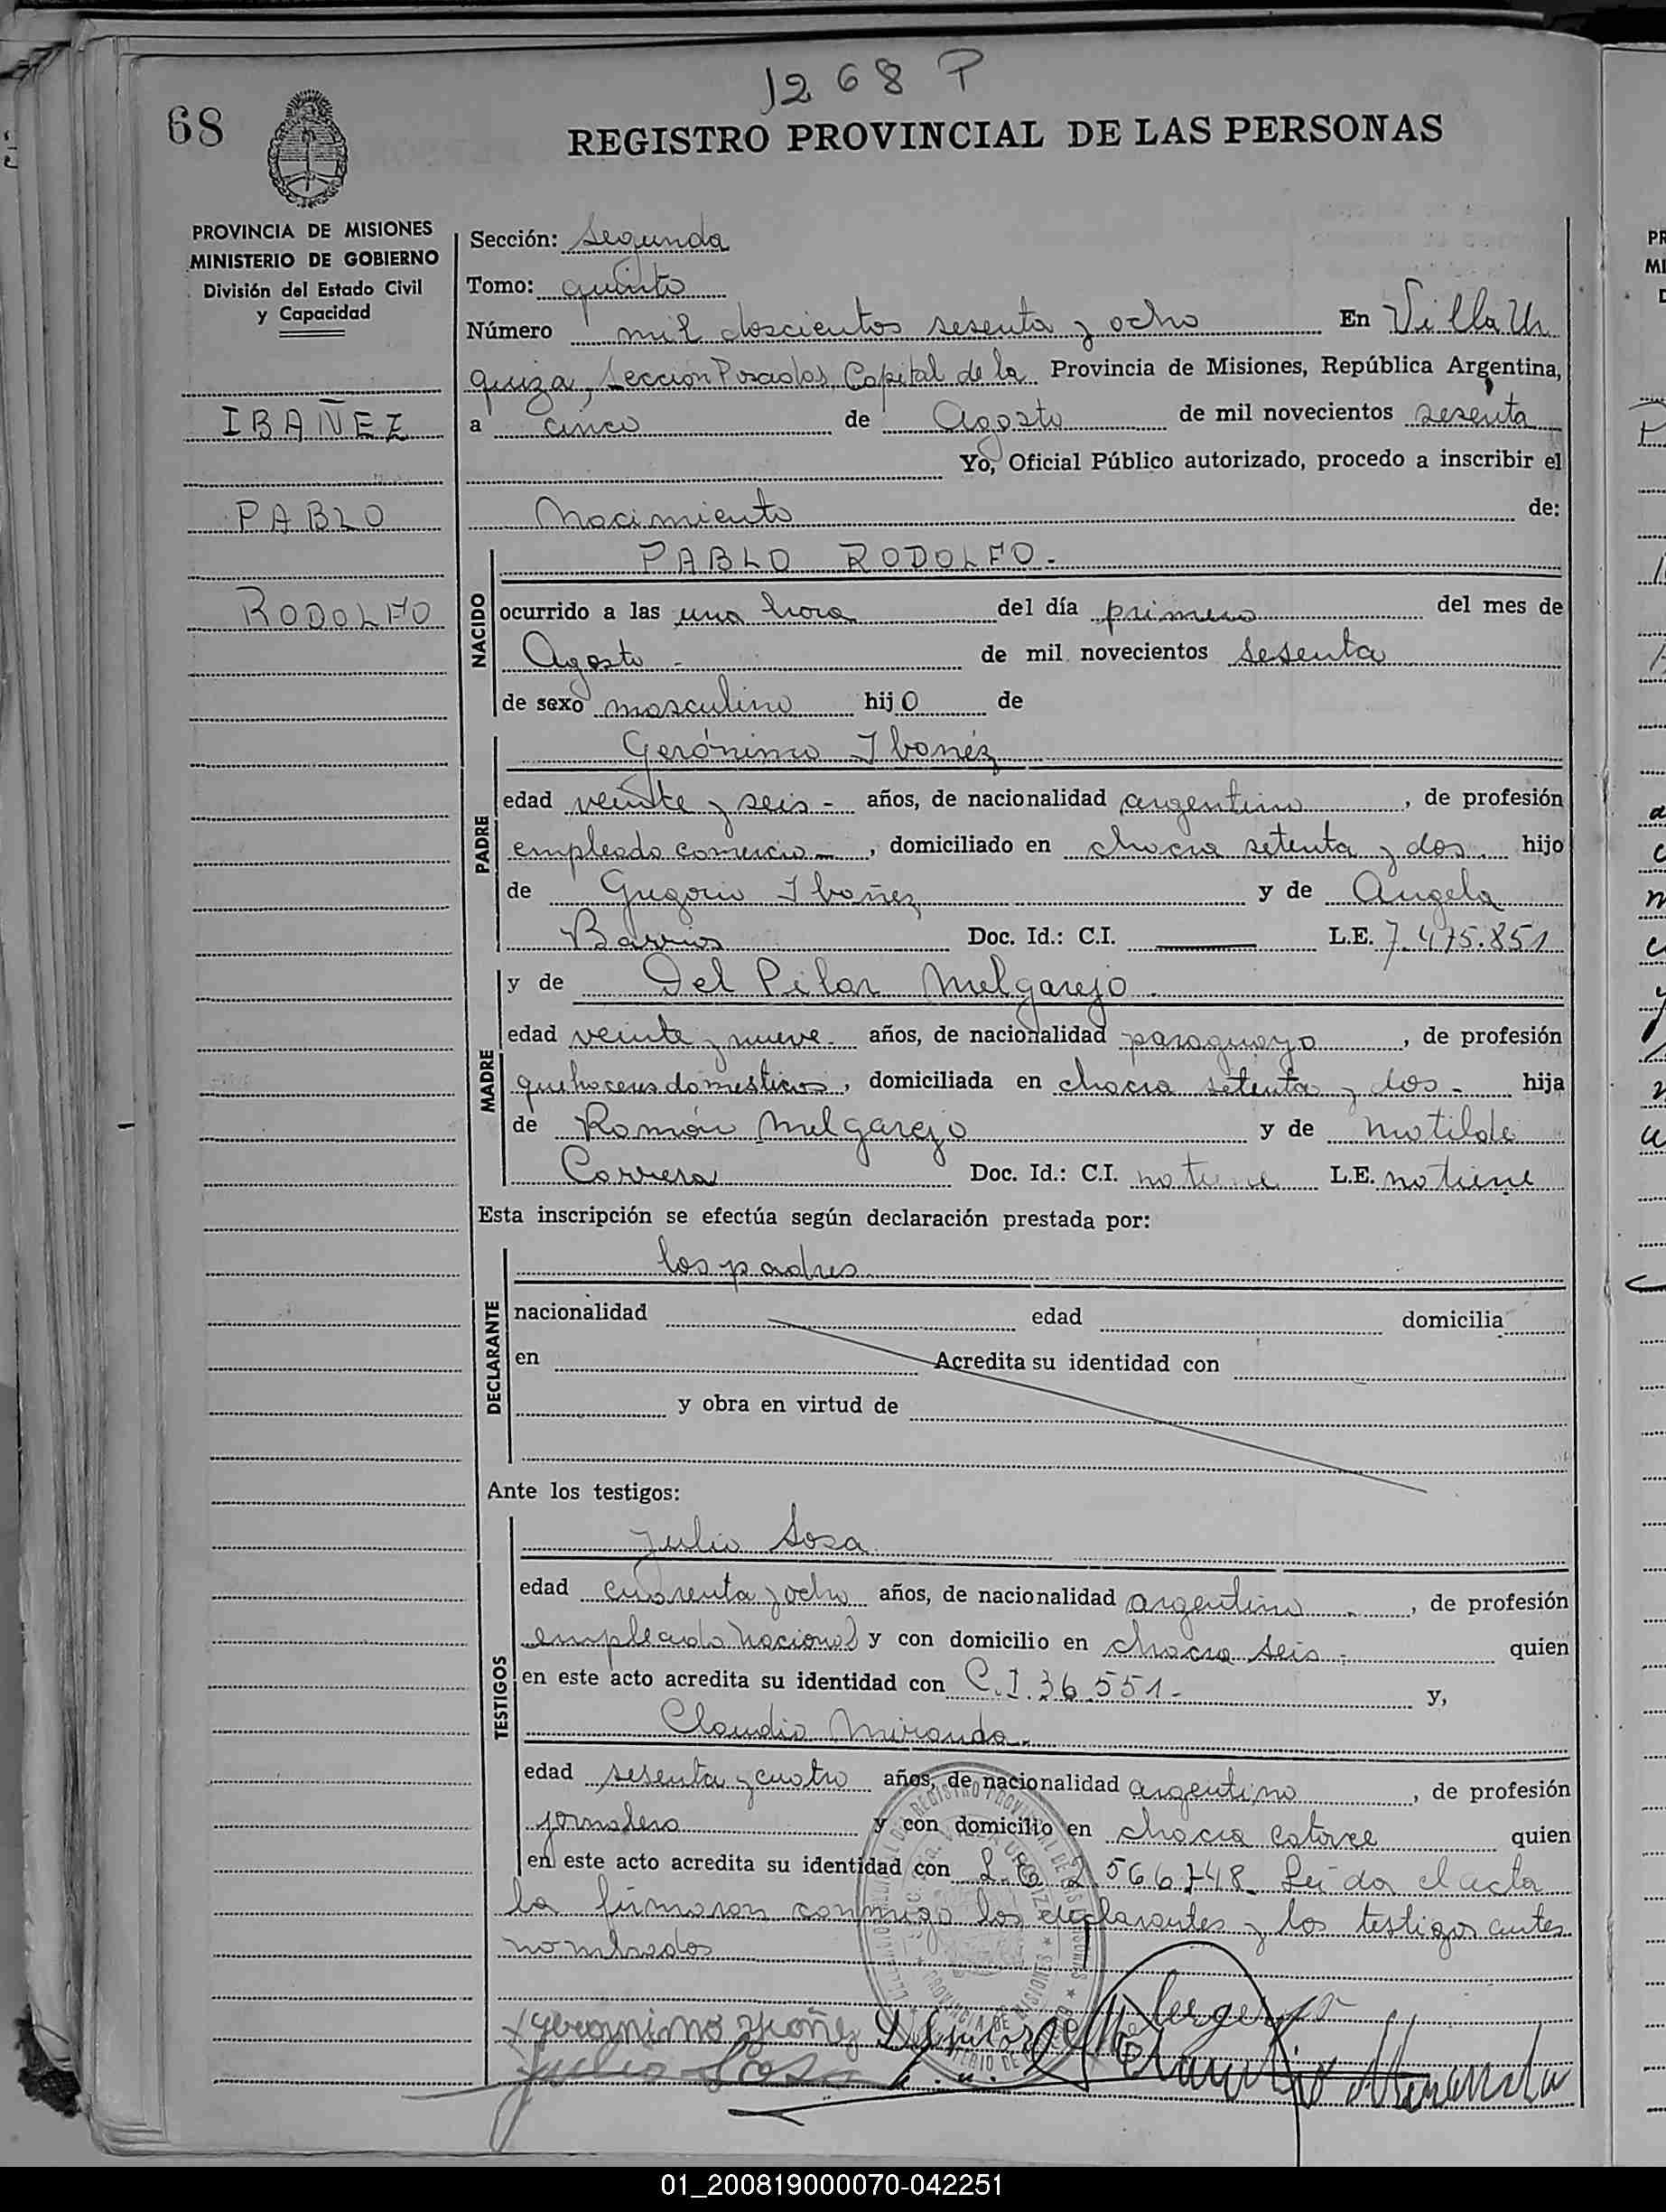 1268 P
68
REGISTRO PROVINCIAL DE LAS PERSONAS
PROVINCIA DE MISIONES
MINISTERIO DE GOBIERNO
División del Estado Civil
y Capacidad
IBAÑEZ
PABLO
RODOLFO
Sección: Segunda
Tomo: quinto
Número mil doscientos sesenta y ocho En Villa Ur
quiza, Sección Posadas, Capital de la Provincia de Misiones, República Argentina,
a cinco de Agosto de mil novecientos sesenta
Yo, Oficial Público autorizado, procedo a inscribir el
Nacimiento de:
NACIDO
PABLO RODOLFO.-
ocurrido a las una hora del día primero del mes de
Agosto - de mil novecientos sesenta
de sexo masculino hijo de
PADRE
Gerónimo Ibanéz
edad veinte y seis - años, de nacionalidad argentino, de profesión
empleado comercio -, domiciliado en chacra setenta y dos. hijo
de Gregorio Ibañez y de Angela
Barrios Doc. Id.: C.I. L.E. 7.475.851
MADRE
y de Del Pilar Melgarejo.
edad veinte y nueve - años, de nacionalidad paraguaya, de profesión
quehaceres domésticos, domiciliada en chacra setenta y dos - hija
de Román Melgarejo y de Matilde
Correra Doc. Id.: C.I. no tiene L.E. no tiene
Esta inscripción se efectúa según declaración prestada por:
DECLARANTE
los padres
nacionalidad edad domicilia
en Acredita su identidad con
y obra en virtud de
Ante los testigos:
TESTIGOS
Julio Sosa
edad cuarenta y ocho años, de nacionalidad argentino -, de profesión
empleado Nacional y con domicilio en chacra seis - quien
en este acto acredita su identidad con C.I. 36.551 - y,
Claudio Miranda.
edad sesenta y cuatro años, de nacionalidad argentino, de profesión
jornalero y con domicilio en chacra catorce quien
en este acto acredita su identidad con 2.566.748 Leída el acta
la firmaron conmigo los declarantes y los testigos antes
nombrados
Julio Sosa
Claudio Miranda
01_200819000070-042251